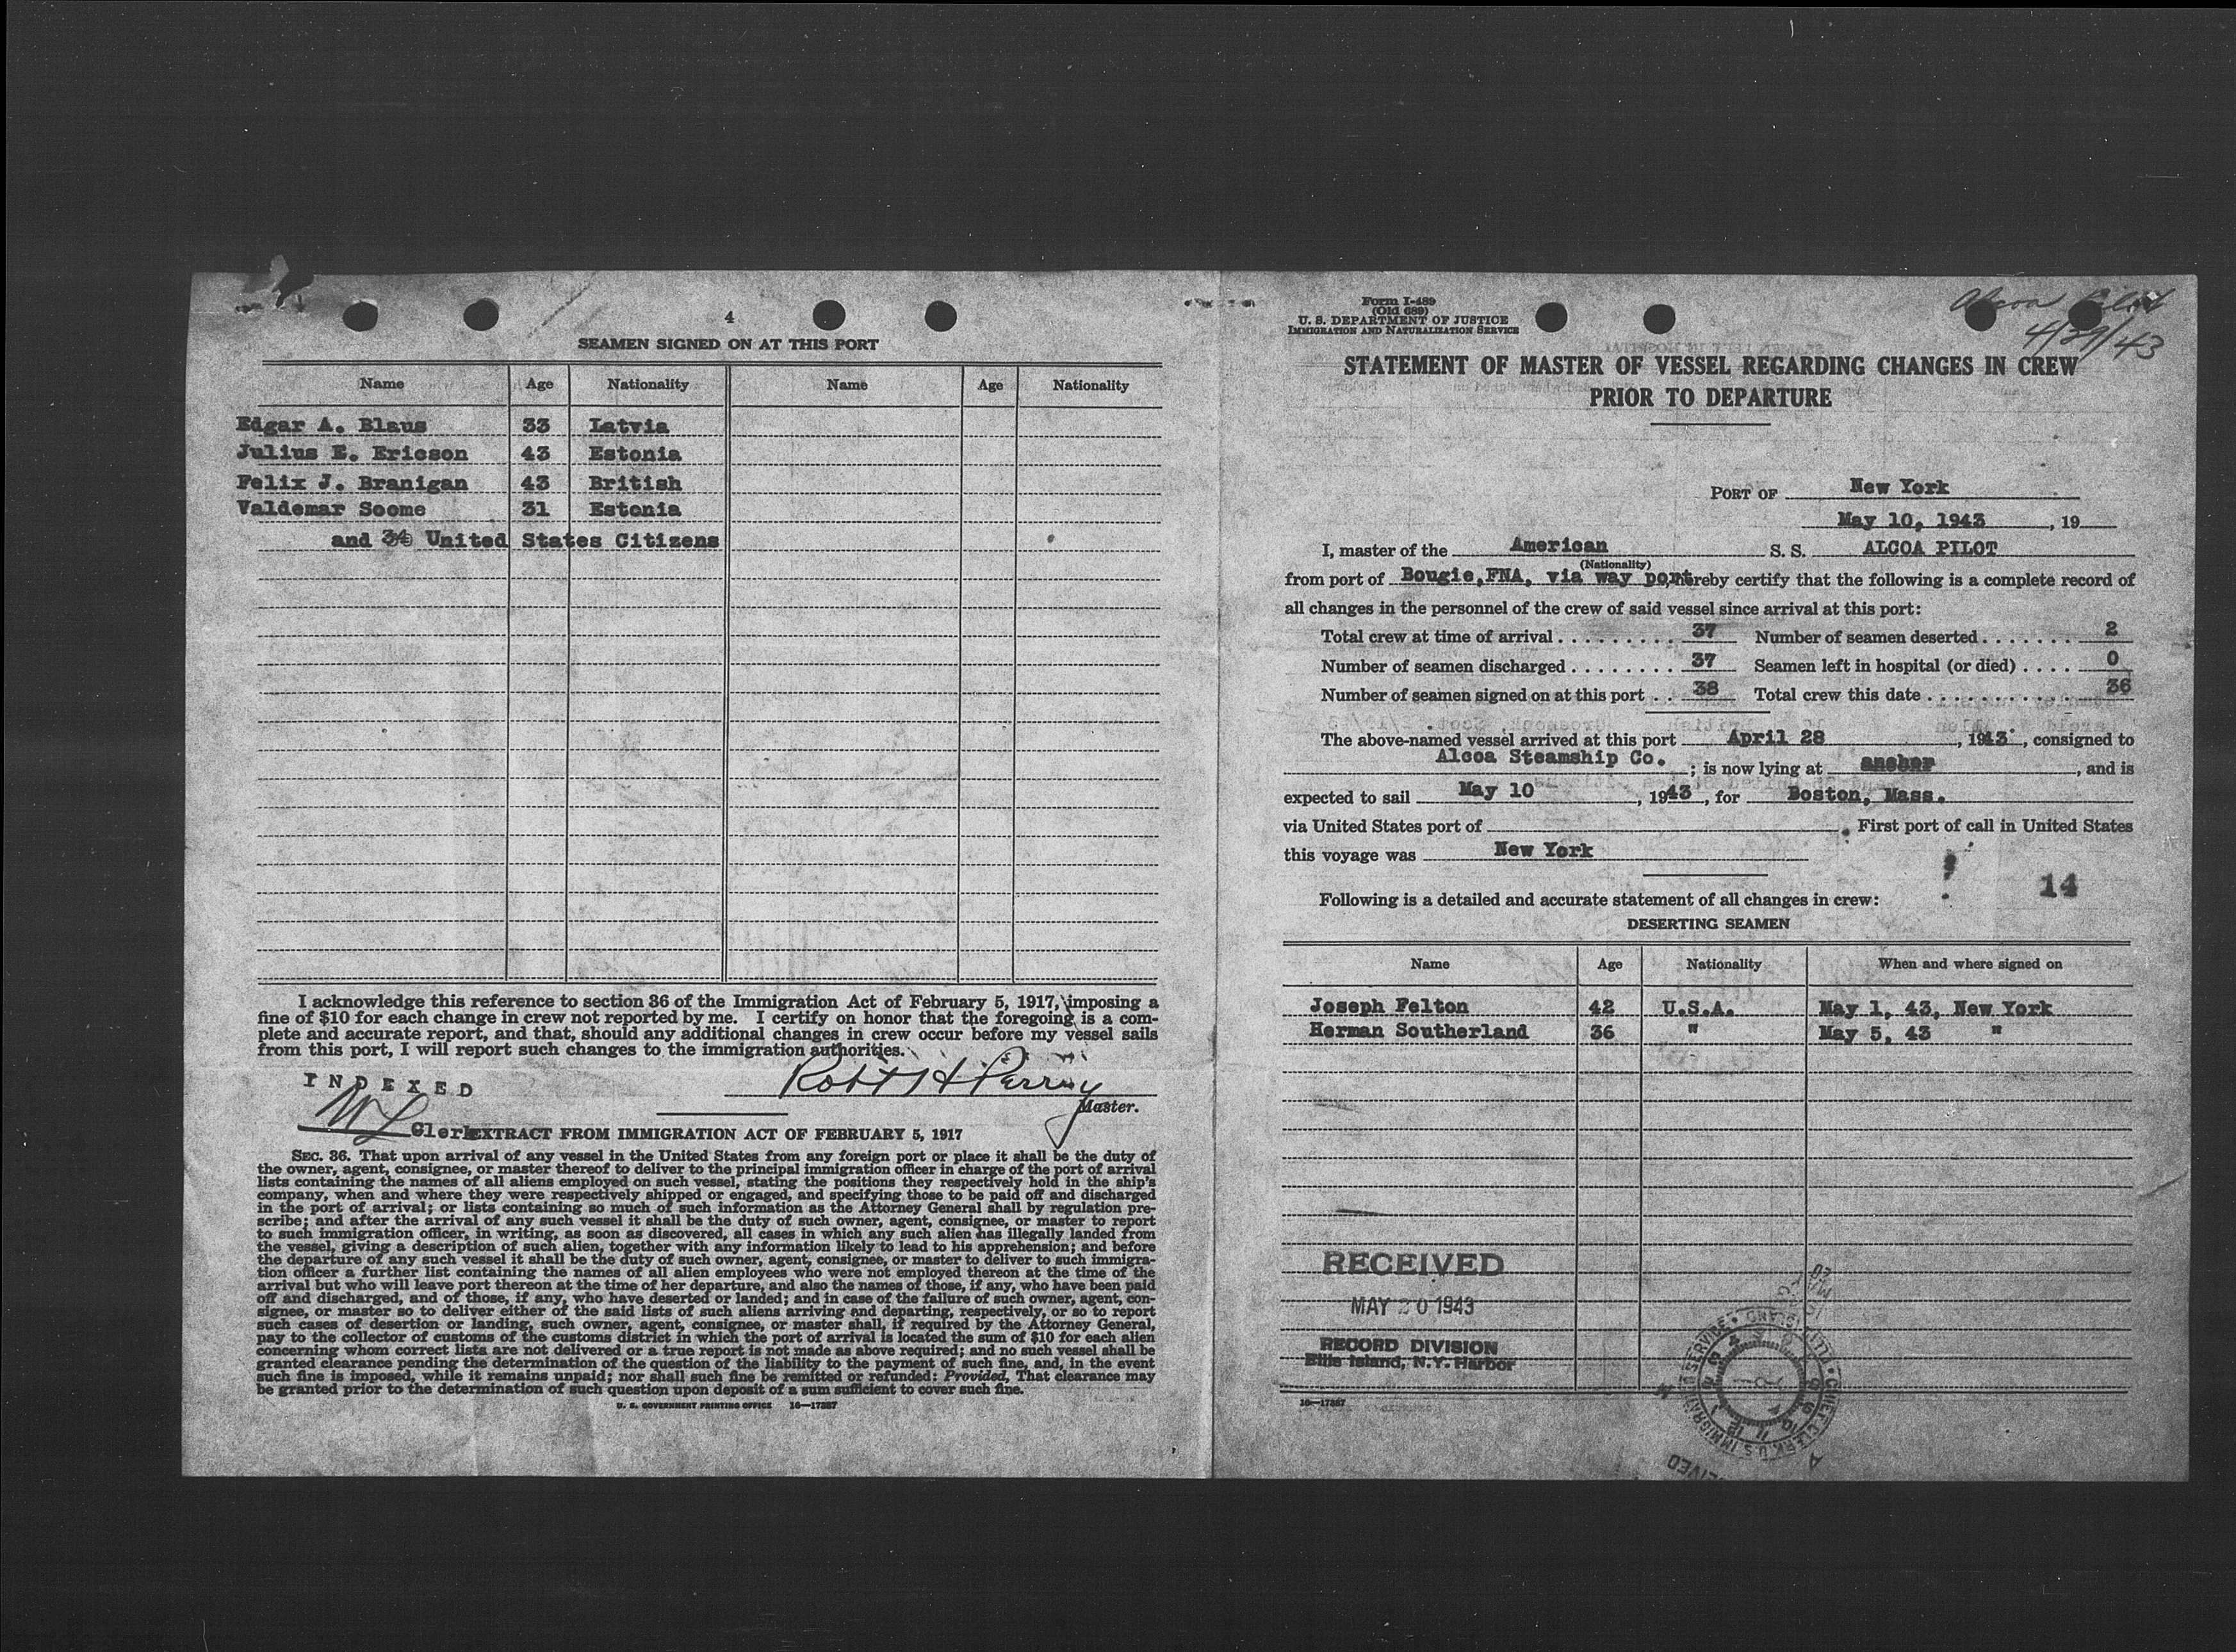 4
SEAMEN SIGNED ON AT THIS PORT
Name Age Nationality Name Age Nationality
Edgar A. Blaus 33 Latvia
Julius E. Ericson 43 Estonia
Felix J. Branigan 43 British
Valdemar Soome 31 Estonia
and 34 United States Citizens
I acknowledge this reference to section 36 of the Immigration Act of February 5, 1917, imposing a
fine of $10 for each change in crew not reported by me. I certify on honor that the foregoing is a com-
plete and accurate report, and that, should any additional changes in crew occur before my vessel sails
from this port, I will report such changes to the immigration authorities.
INDEXED
Robt H Perray
Master.
Clerk
EXTRACT FROM IMMIGRATION ACT OF FEBRUARY 5, 1917
SEC. 36. That upon arrival of any vessel in the United States from any foreign port or place it shall be the duty of
the owner, agent, consignee, or master thereof to deliver to the principal immigration officer in charge of the port of arrival
lists containing the names of all aliens employed on such vessel, stating the positions they respectively hold in the ship's
company, when and where they were respectively shipped or engaged, and specifying those to be paid off and discharged
in the port of arrival; or lists containing so much of such information as the Attorney General shall by regulation pre-
scribe; and after the arrival of any such vessel it shall be the duty of such owner, agent, consignee, or master to report
to such immigration officer, in writing, as soon as discovered, all cases in which any such alien has illegally landed from
the vessel, giving a description of such alien, together with any information likely to lead to his apprehension; and before
the departure of any such vessel it shall be the duty of such owner, agent, consignee, or master to deliver to such immigra-
tion officer a further list containing the names of all alien employees who were not employed thereon at the time of the
arrival but who will leave port thereon at the time of her departure, and also the names of those, if any, who have been paid
off and discharged, and of those, if any, who have deserted or landed; and in case of the failure of such owner, agent, con-
signee, or master so to deliver either of the said lists of such aliens arriving and departing, respectively, or so to report
such cases of desertion or landing, such owner, agent, consignee, or master shall, if required by the Attorney General,
pay to the collector of customs of the customs district in which the port of arrival is located the sum of $10 for each alien
concerning whom correct lists are not delivered or a true report is not made as above required; and no such vessel shall be
granted clearance pending the determination of the question of the liability to the payment of such fine, and, in the event
such fine is imposed, while it remains unpaid; nor shall such fine be remitted or refunded: Provided, That clearance may
be granted prior to the determination of such question upon deposit of a sum sufficient to cover such fine.
U. S. GOVERNMENT PRINTING OFFICE 16—17387
Form I-489
(Old 689)
U. S. DEPARTMENT OF JUSTICE
IMMIGRATION AND NATURALIZATION SERVICE
Alcoa Pilot
4/29/43
STATEMENT OF MASTER OF VESSEL REGARDING CHANGES IN CREW
PRIOR TO DEPARTURE
PORT OF New York
May 10, 1943, 19
I, master of the American S. S. ALCOA PILOT
(Nationality)
from port of Bougie, FNA, via way port, hereby certify that the following is a complete record of
all changes in the personnel of the crew of said vessel since arrival at this port:
Total crew at time of arrival 37 Number of seamen deserted 2
Number of seamen discharged 37 Seamen left in hospital (or died) 0
Number of seamen signed on at this port 38 Total crew this date 36
The above-named vessel arrived at this port April 28, 1943, consigned to
Alcoa Steamship Co.; is now lying at anchor, and is
expected to sail May 10, 1943, for Boston, Mass.
via United States port of . First port of call in United States
this voyage was New York
14
Following is a detailed and accurate statement of all changes in crew:
DESERTING SEAMEN
Name Age Nationality When and where signed on
Joseph Felton 42 U.S.A. May 1, 43, New York
Herman Southerland 36 " May 5, 43 "
RECEIVED
MAY 20 1943
RECORD DIVISION
Ellis Island, N.Y. Harbor
16—17387
CHIEF CLERK U.S. IMMIGRATION SERVICE • ELLIS ISLAND